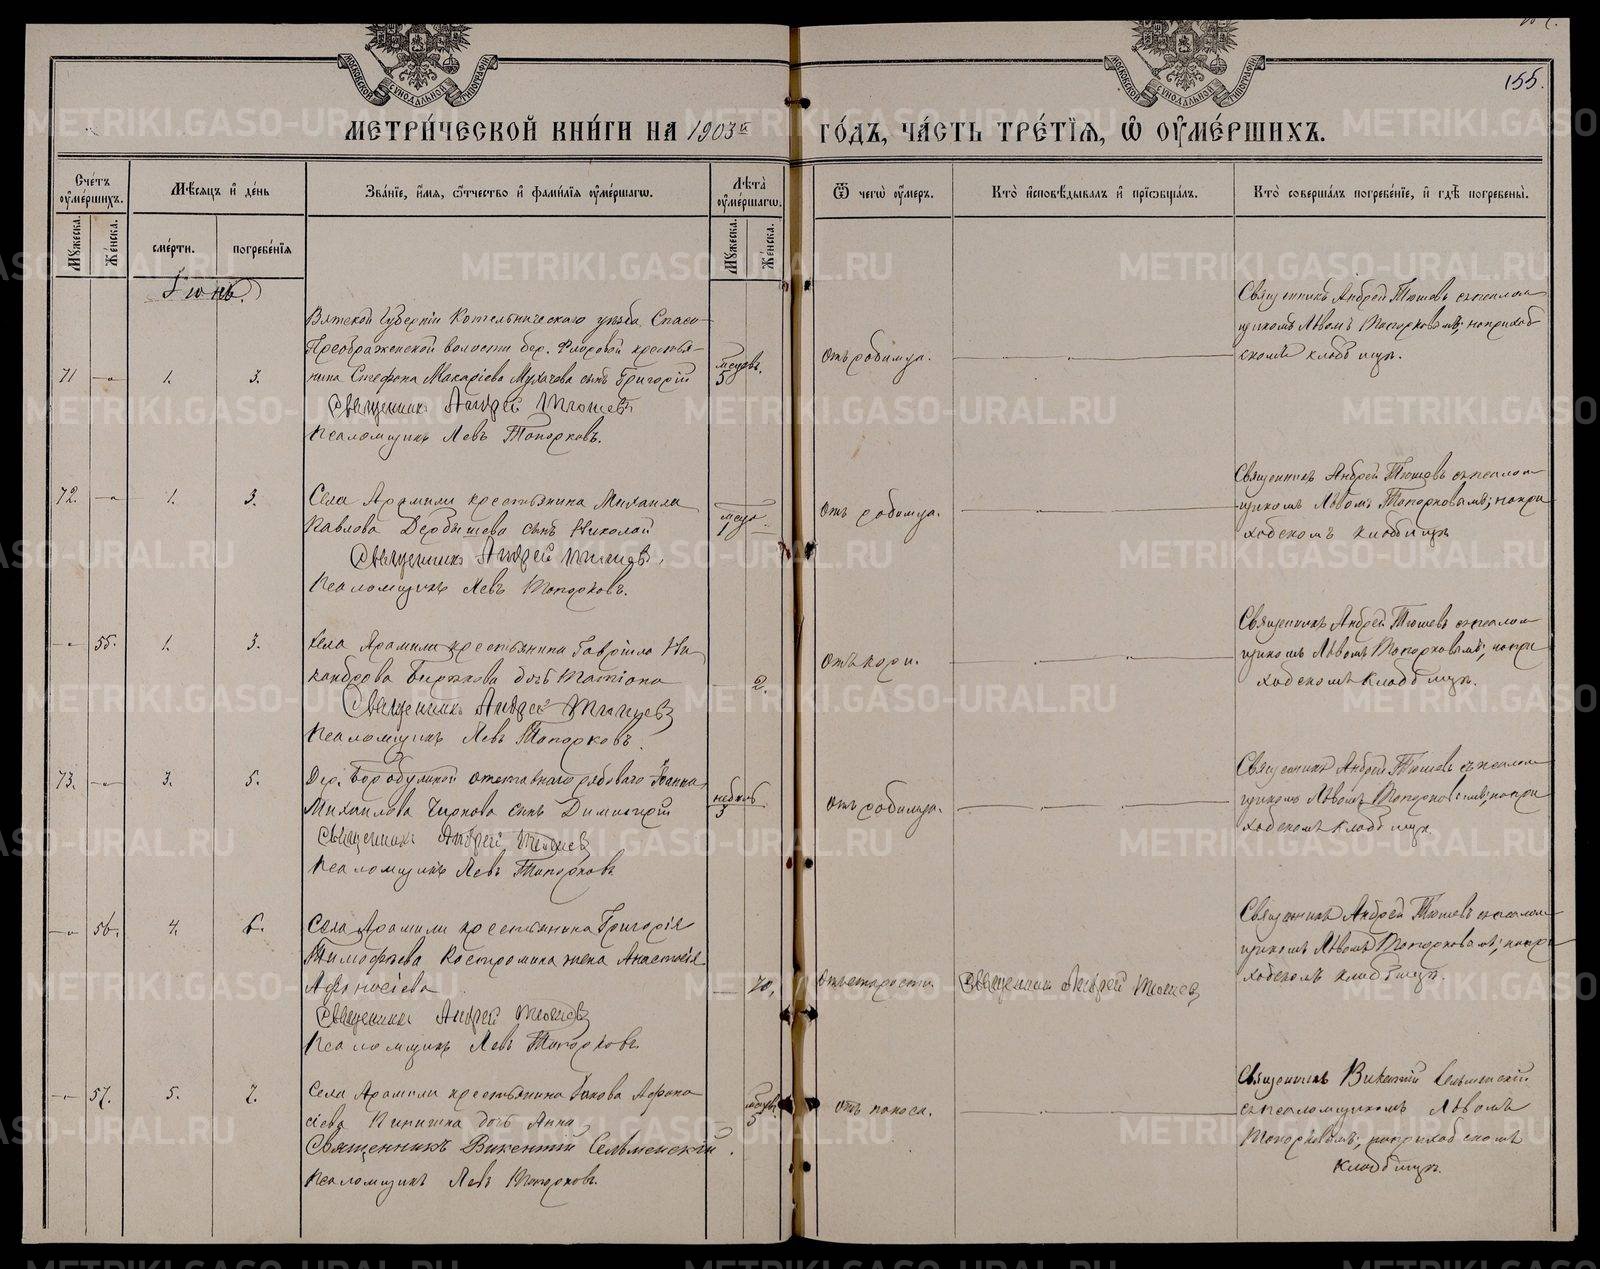 155.
МОСКОВСКОЙ СУНОДАЛЬНОЙ ТИПОГРАФІИ
МОСКОВСКОЙ СУНОДАЛЬНОЙ ТИПОГРАФІИ
МЕТРИ́ЧЕСКОЙ КНИ́ГИ НА 1903й ГО́ДЪ, ЧА́СТЬ ТРЕ́ТІѦ, Ѡ ОУМЕ́РШИХЪ.
Сче́тъ оуме́ршихъ.
Мужеска.
Же́нска.
Мѣ́сяцъ и де́нь
сме́рти.
погребе́нія
Зва́ніе, и́мя, ѻ́тчество и фами́лія оуме́ршагѡ.
Лѣ́та оуме́ршагѡ.
Мужеска.
Же́нска.
Ѿ чегѡ̀ оу́меръ.
Кто̀ исповѣ́дывалъ и прїѡбща́лъ.
Кто̀ соверша́лъ погребе́ніе, и гдѣ̀ погребены̀.
Іюнь.
71 1. 3.
Вятской Губерніи Котельническаго уѣзда, Спасо-
Преображенской волости дер. Фроровой крестья-
нина Стефана Макаріева Мухачева сынъ Григорій
Священникъ Андрей Тюшевъ
Псаломщикъ Левъ Топорковъ.
5
Отъ родимца.
Священникъ Андрей Тюшевъ съ псалом-
щикомъ Львомъ Топорковымъ; на приход-
скомъ кладбищѣ.
72. 1. 3.
Села Арамили крестьянина Михаила
Павлова Дербышева сынъ Николай
Священникъ Андрей Тюшевъ.
Псаломщикъ Левъ Топорковъ.
Отъ родимца.
Священникъ Андрей Тюшевъ съ псалом-
щикомъ Львомъ Топорковымъ; на при-
ходскомъ кладбищѣ
55. 1. 3.
Села Арамили крестьянина Гавріила Ни-
кандрова дочь Татіана
Священникъ Андрей Тюшевъ
Псаломщикъ Левъ Топорковъ.
2.
Отъ кори.
Священникъ Андрей Тюшевъ съ псалом-
щикомъ Львомъ Топорковымъ; на при-
ходскомъ кладбищѣ.
73. 3. 5.
Дер. отставного рядового Іоанна
Михаилова Чиркова сынъ Димитрій
Священникъ Андрей Тюшевъ
Псаломщикъ Левъ Топорковъ
3
Отъ родимца.
Священникъ Андрей Тюшевъ съ псалом-
щикомъ Львомъ Топорковымъ; на при-
ходскомъ кладбищѣ.
56. 4. 6.
Села Арамили крестьянина Григорія
Тимофѣева Костромина жена Анастасія
Афанасіева
Священникъ Андрей Тюшевъ
Псаломщикъ Левъ Топорковъ.
70.
Отъ старости.
Священникъ Андрей Тюшевъ
Священникъ Андрей Тюшевъ съ псалом-
щикомъ Львомъ Топорковымъ; на при-
ходскомъ кладбищѣ.
57. 5. 7.
Села Арамили крестьянина Іакова Афана-
сіева дочь Анна
Священникъ Викентій Сельменскій.
Псаломщикъ Левъ Топорковъ.
5
Отъ поноса.
Священникъ Викентій Сельменскій
съ псаломщикомъ Львомъ
Топорковымъ; на приходскомъ
кладбищѣ.
METRIKI.GASO-URAL.RU